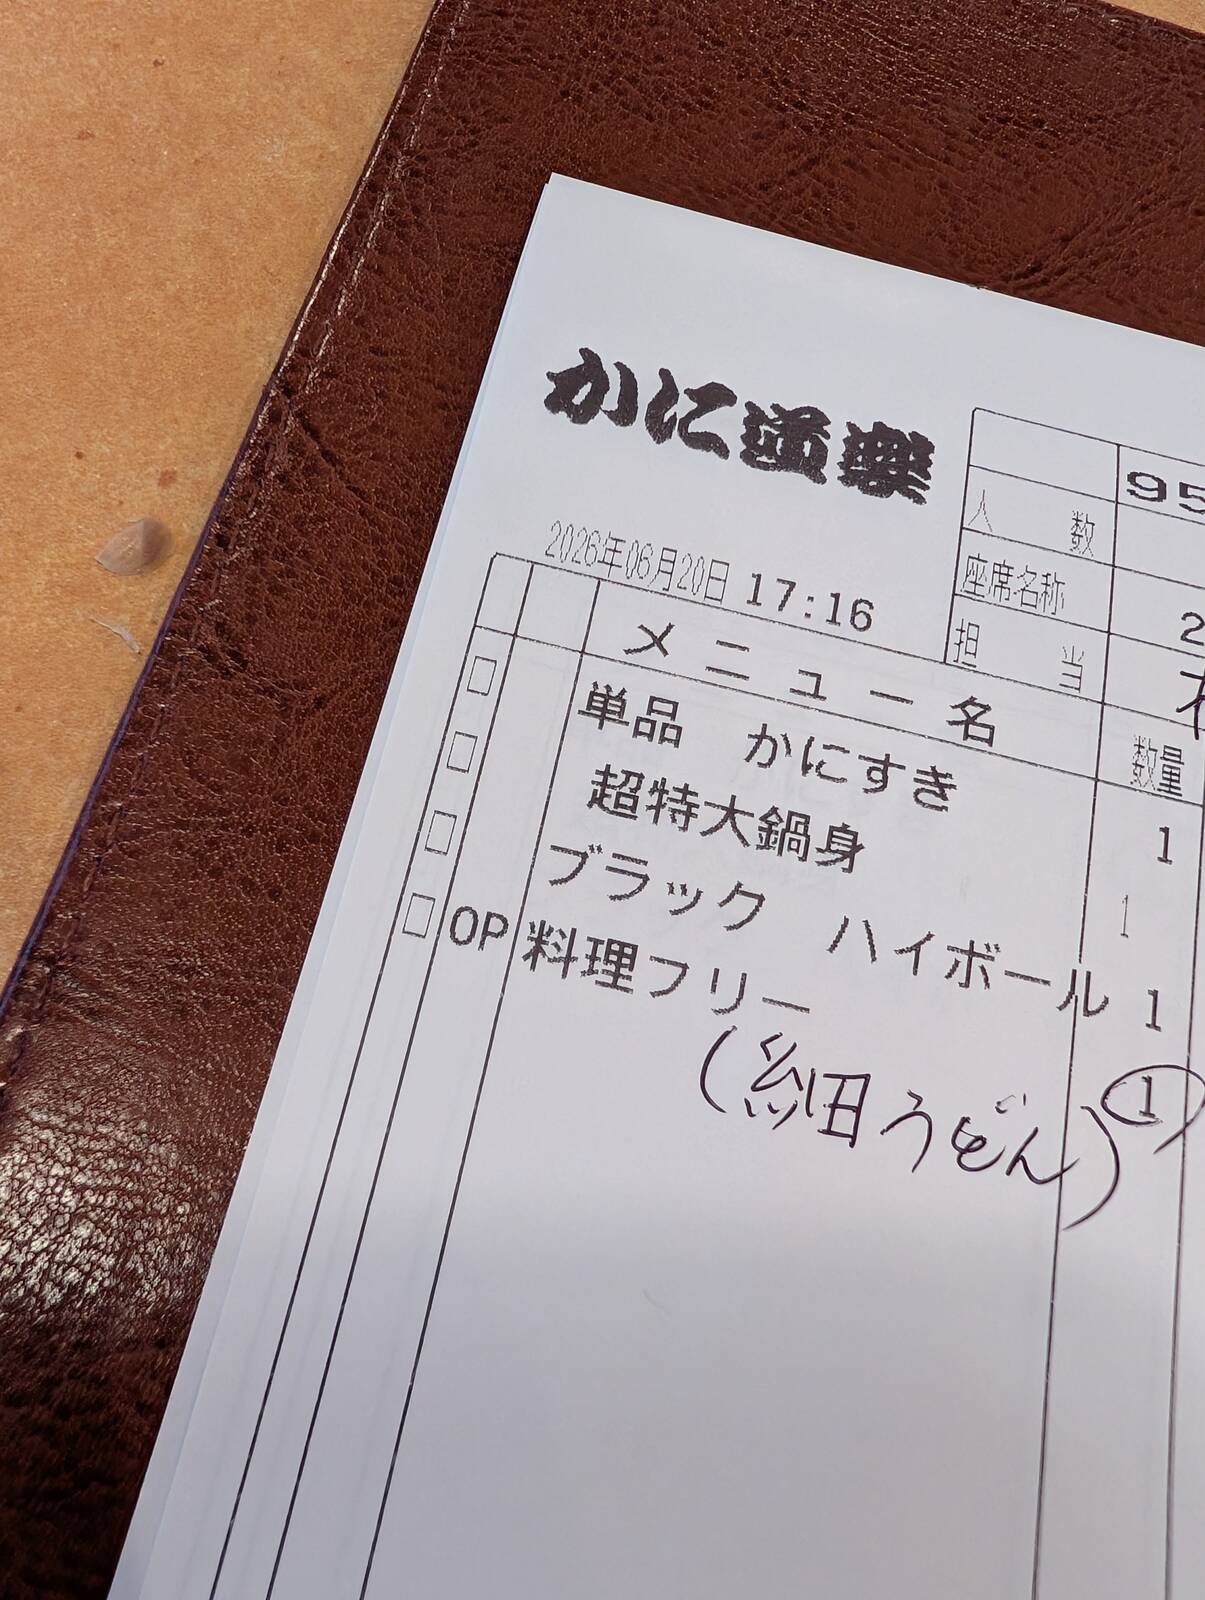 かに道楽
95
人数
座席名称 2
担当
2026年06月20日 17:16
メニュー名 数量
単品 かにすき 1
超特大鍋身 1
ブラック ハイボール 1
OP 料理フリー
(細うどん) 1